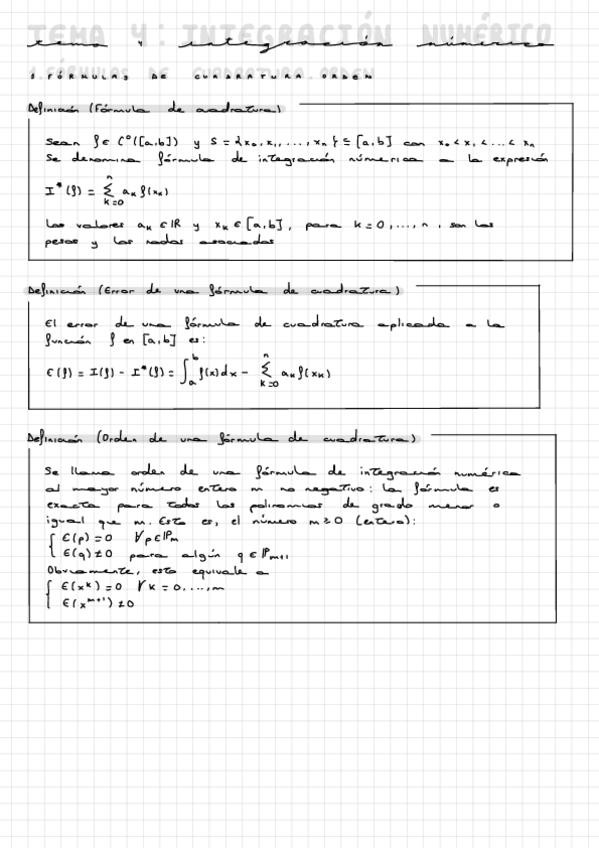 TEMA 4: INTEGRACIÓN NUMÉRICO
tema 4 integración numérica
1. FÓRMULAS DE CUADRATURA. ORDEN
Definición (Fórmula de cuadratura)
Sean f ∈ C⁰([a,b]) y S = {x₀, x₁, ..., xₙ} ⊆ [a,b] con x₀ < x₁ < ... < xₙ
Se denomina fórmula de integración númerica a la expresión
I*(f) = Σₖ₌₀ⁿ aₖ f(xₖ)
Los valores aₖ ∈ ℝ y xₖ ∈ [a,b], para k = 0, ..., n, son los
pesos y los nodos asociados
Definición (Error de una fórmula de cuadratura)
El error de una fórmula de cuadratura aplicada a la
función f en [a,b] es:
E(f) = I(f) - I*(f) = ∫ₐᵇ f(x)dx - Σₖ₌₀ⁿ aₖ f(xₖ)
Definición (Orden de una fórmula de cuadratura)
Se llama orden de una fórmula de integración numérica
al mayor número entero m no negativo: la fórmula es
exacta para todos los polinomios de grado menor o
igual que m. Esto es, el número m ≥ 0 (entero):
{ E(p) = 0 ∀p ∈ ℙₘ
E(q) ≠ 0 para algún q ∈ ℙₘ₊₁
Obviamente, esto equivale a
{ E(xᵏ) = 0 ∀k = 0, ..., m
E(xᵐ⁺¹) ≠ 0